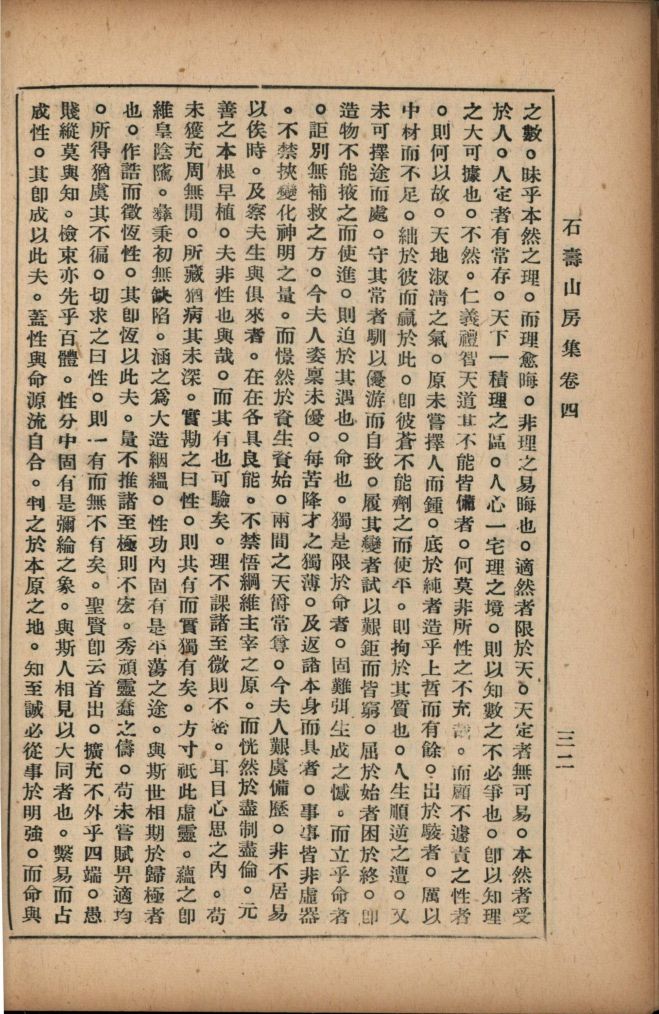 石壽山房集卷四
三二
之數。昧乎本然之理。而理愈晦。非理之易晦也。適然者限於天。天定者無可易。本然者受
於人。人定者有常存。天下一積理之區。人心一宅理之境。則以知數之不必爭也。卽以知理
之大可據也。不然。仁義禮智天道其不能皆備者。何莫非所性之不充。而顧不遽責之性者
。則何以故。天地淑淸之氣。原未嘗擇人而鍾。底於純者造乎上哲而有餘。出於駁者。厲以
中材而不足。絀於彼而贏於此。卽彼蒼不能劑之而使平。則拘於其質也。人生順逆之遭。又
未可擇途而處。守其常者馴以優游而自致。履其變者試以艱鉅而皆窮。屈於始者困於終。卽
造物不能掖之而使進。則迫於其遇也。命也。獨是限於命者。固難弭生成之憾。而立乎命者
。詎別無補救之方。今夫人姿稟未優。每苦降才之獨薄。及返諸本身而具者。事事皆非虛器
。不禁挾變化神明之量。而憬然於資生資始。兩間之天爵常尊。今夫人艱虞備歷。非不居易
以俟時。及察夫生與俱來者。在在各具良能。不禁悟綱維主宰之原。而恍然於盡制盡倫。元
善之本根早植。夫非性也與哉。而其有也可驗矣。理不課諸至微則不密。耳目心思之內。苟
未獲充周無閒。所藏猶病其未深。實勘之曰性。則共有而實獨有矣。方寸祇此虛靈。蘊之卽
維皇陰騭。彝秉初無缺陷。涵之爲大造絪緼。性功內固有是平蕩之途。與斯世相期於歸極者
也。作誥而徵恆性。其卽恆以此夫。量不推諸至極則不宏。秀頑靈蠢之儔。苟未嘗賦畀適均
。所得猶虞其不徧。切求之曰性。則一有而無不有矣。聖賢卽云首出。擴充不外乎四端。愚
賤縱莫與知。檢束亦先乎百體。性分中固有是彌綸之象。與斯人相見以大同者也。繫易而占
成性。其卽成以此夫。蓋性與命源流自合。判之於本原之地。知至誠必從事於明強。而命與